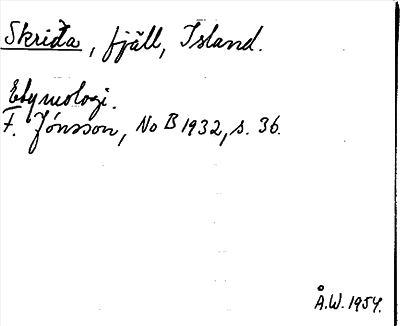 Skriða, fjäll, Island.
Etymologi.
F. Jónsson, No B 1932, s. 36.
Å.W. 1954.